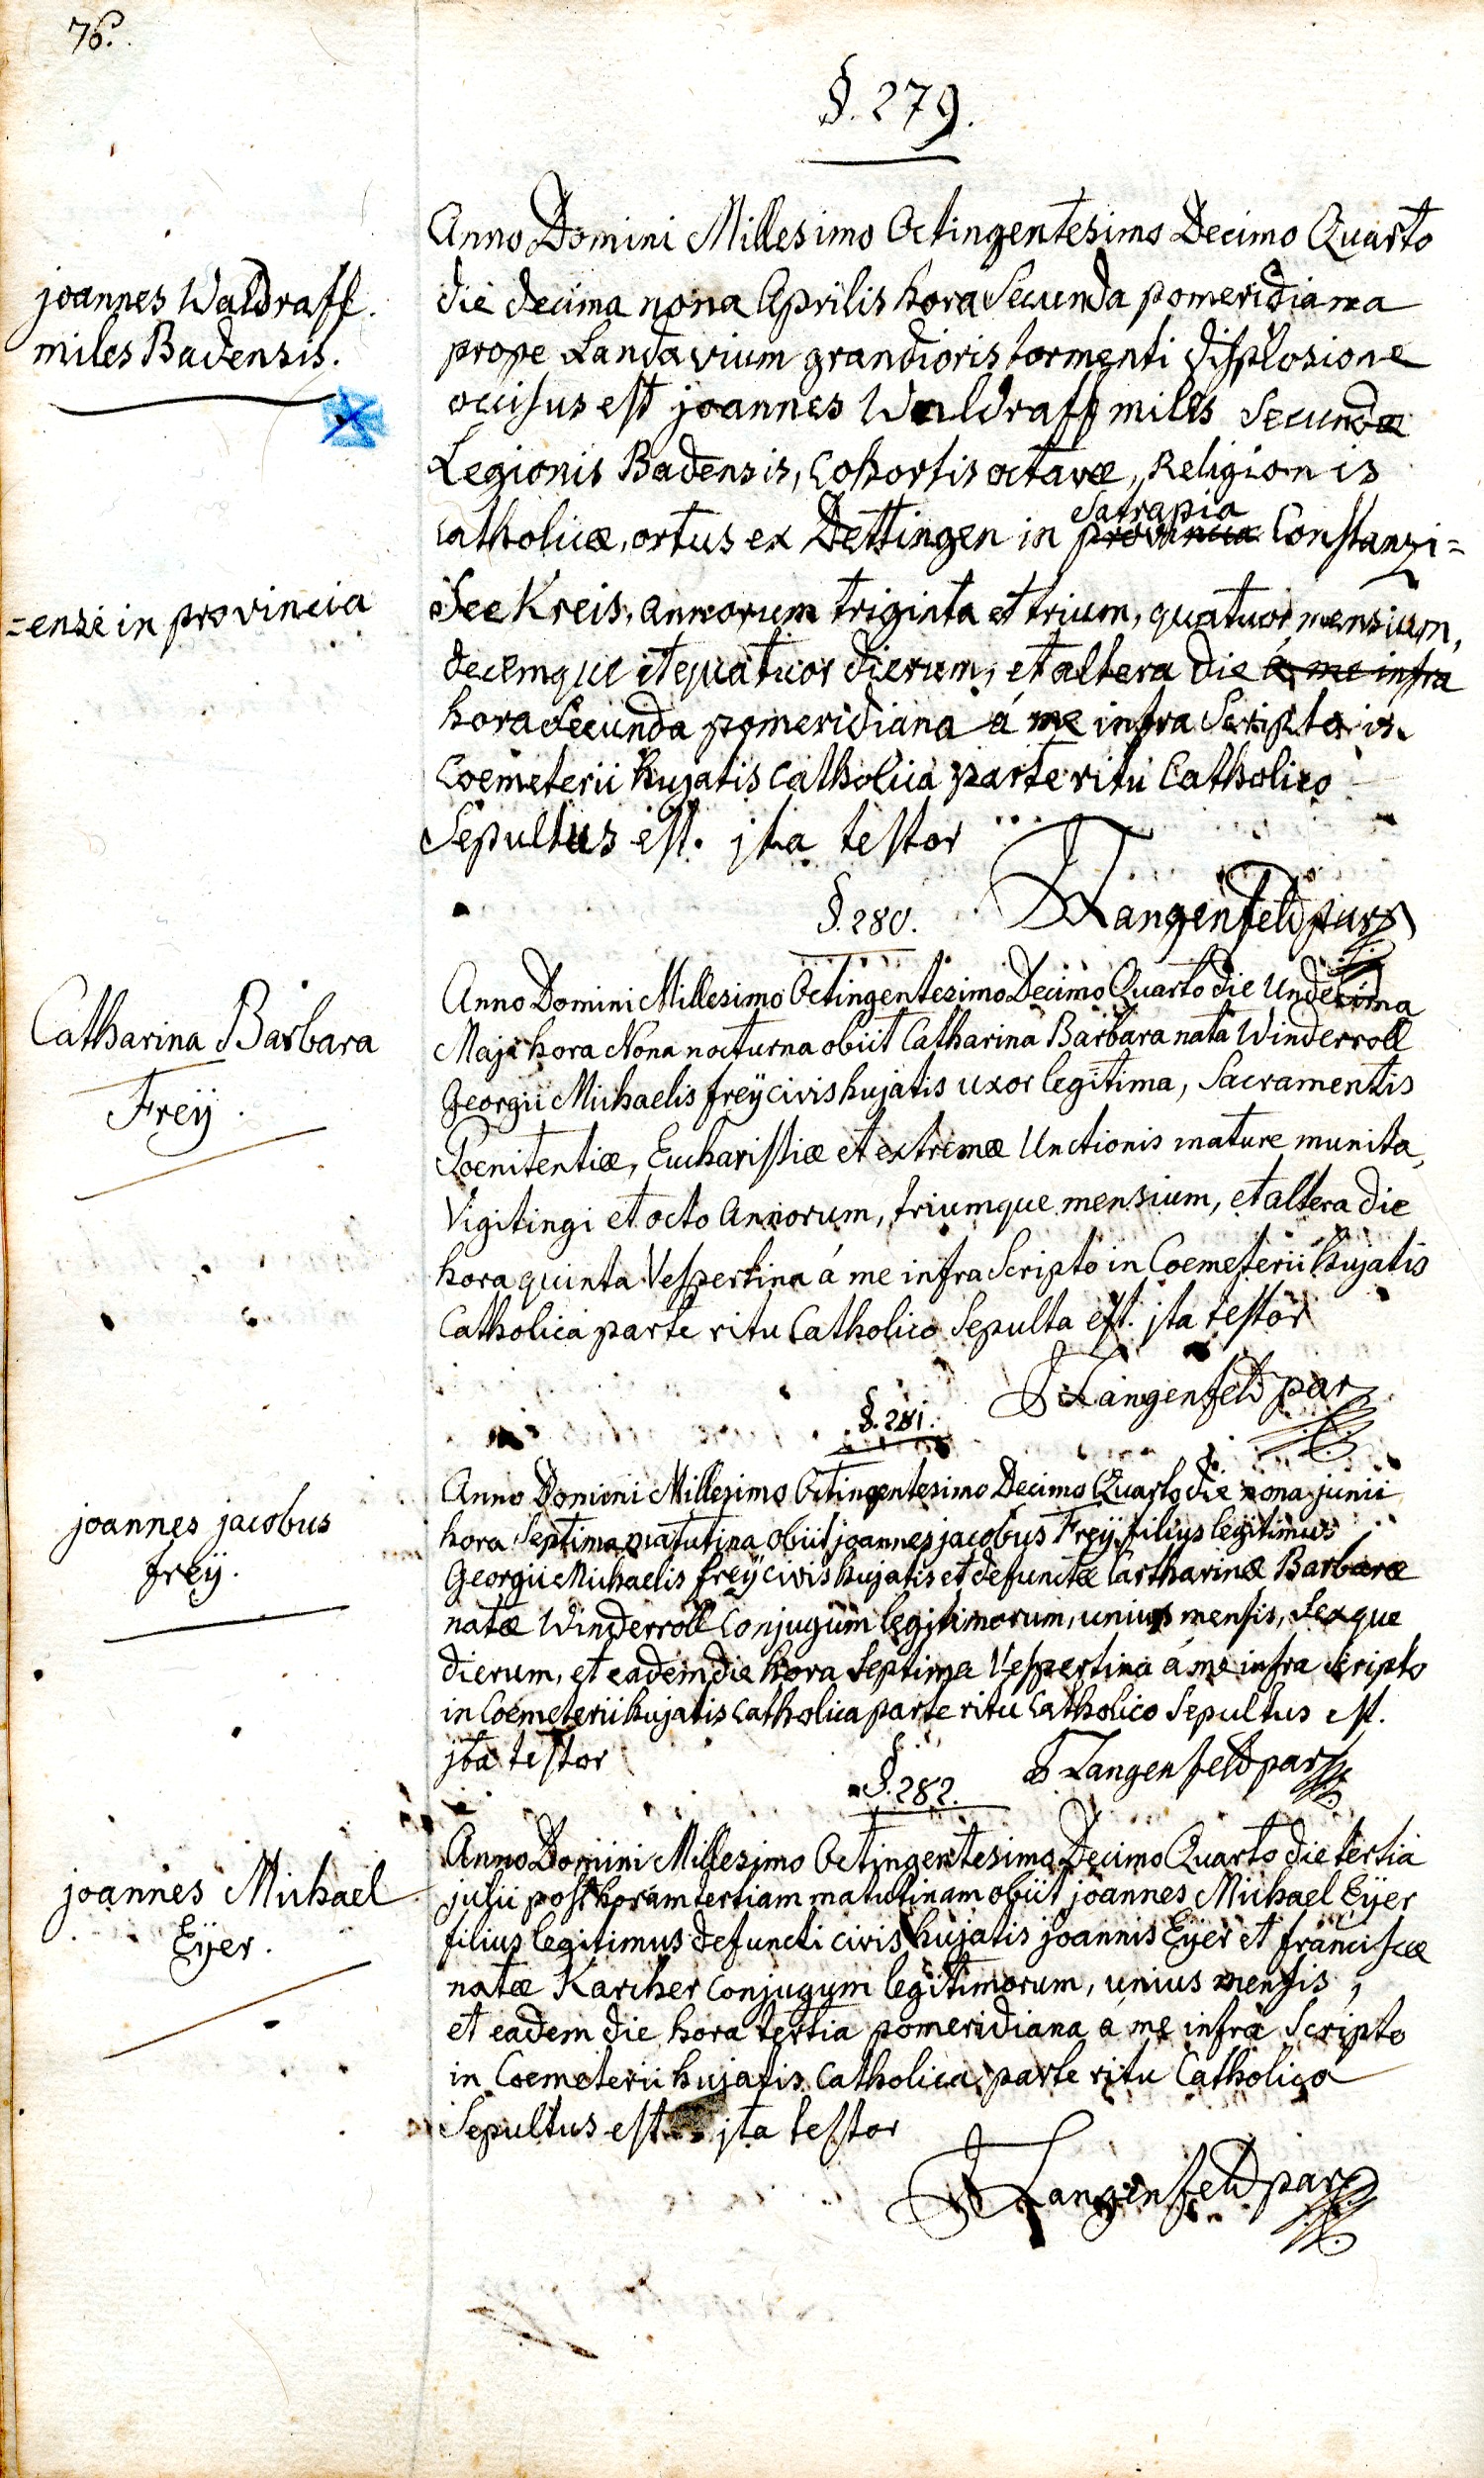 76.
§. 279.
joannes Waldraff.
miles Badensis.
Anno Domini Millesimo Octingentesimo Decimo Quarto
die decima nona Aprilis hora Secunda pomeridiana
prope Landavium grandioris tormenti displosione
occisus est joannes Waldraff miles Secundæ
Legionis Badensis, Cohortis octavæ, Religionis
Satrapia
catholicæ, ortus ex Dettingen in provincia Constanzi=
=ensi in provincia
See Kreis, annorum triginta et trium, quatuor mensium,
decemque et quatuor dierum, et altera die á me infra
hora Secunda pomeridiana á me infra Scripto in
Coemeterii hujatis catholica parte ritu Catholico
Sepultus est. jta testor
Langenfeld par
§. 280.
Catharina Barbara
Freÿ.
Anno Domini Millesimo Octingentesimo Decimo Quarto die Undecima
Maji hora Nona nocturna obiit Catharina Barbara nata Winderroll
Georgii Michaelis freÿ civis hujatis uxor legitima, Sacramentis
Poenitentiæ, Eucharistiæ et extremæ Unctionis mature munita,
Vigitingi et octo Annorum, triumque mensium, et altera die
hora quinta Vespertina á me infra Scripto in Coemeterii hujatis
Catholica parte ritu Catholico Sepulta est. jta testor
Langenfeld par
§. 281.
joannes jacobus
freÿ.
Anno Domini Millesimo Octingentesimo Decimo Quarto die nona junii
hora Septima matutina obiit joannes jacobus Freÿ filius legitimus
Georgii Michaelis freÿ civis hujatis et defunctæ Cartharinæ Barbaræ
natæ Winderroll Conjugum legitimorum, unius mensis, Sexque
dierum, et eadem die hora Septima Vespertina á me infra Scripto
in Coemeterii hujatis Catholica parte ritu Catholico Sepultus est.
jta testor
Langenfeld par
§. 282.
joannes Michael
Eÿer.
Anno Domini Millesimo Octingentesimo Decimo Quarto die tertia
julii post horam tertiam matutinam obiit joannes Michael Eÿer
filius legitimus defuncti civis hujatis joannis Eÿer et franciscæ
natæ Karcher Conjugum legitimorum, unius mensis,
et eadem die hora tertia pomeridiana á me infra Scripto
in Coemeterii hujatis Catholica parte ritu Catholico
Sepultus est. jta testor
Langenfeld par